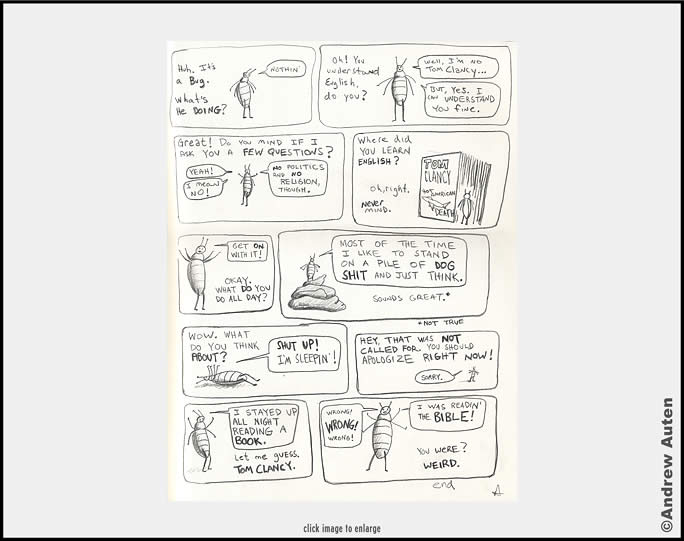 Huh. It's
a Bug.
What's
He DOING?
NOTHIN'
Oh! You
understand
English,
do you?
Well, I'm no
Tom Clancy...
BUT, YES. I
CAN UNDERSTAND
YOU FINE.
Great! DO YOU MIND IF I
ASK YOU A FEW QUESTIONS?
YEAH!
I MEAN
NO!
NO POLITICS
AND NO
RELIGION,
THOUGH.
Where did
YOU LEARN
ENGLISH?
Oh, right.
Never
MIND.
TOM
CLANCY
AMERICAN
DEATH
GET ON
WITH IT!
OKAY.
WHAT DO YOU
DO ALL DAY?
MOST OF THE TIME
I LIKE TO STAND
ON A PILE OF DOG
SHIT AND JUST THINK.
SOUNDS GREAT.*
*NOT TRUE
WOW. WHAT
DO YOU THINK
ABOUT?
SHUT UP!
I'M SLEEPIN'!
HEY, THAT WAS NOT
CALLED FOR. YOU SHOULD
APOLOGIZE RIGHT NOW!
SORRY.
I STAYED UP
ALL NIGHT
READING A
BOOK.
Let me guess.
TOM CLANCY.
WRONG!
WRONG!
WRONG!
I WAS READIN'
THE BIBLE!
YOU WERE?
WEIRD.
end
A
click image to enlarge
©Andrew Auten